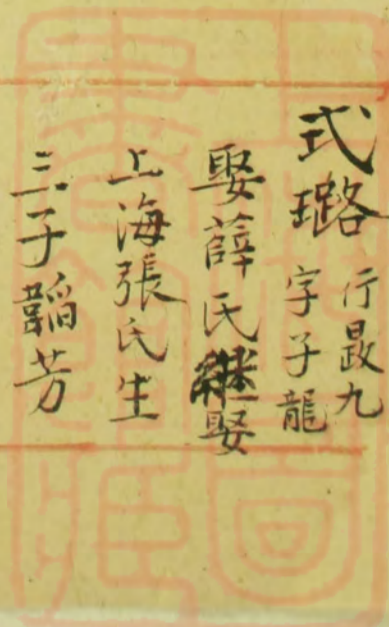 式璐
行晸九
字子龍
娶薛氏繼娶
上海張氏生
三子韜芳